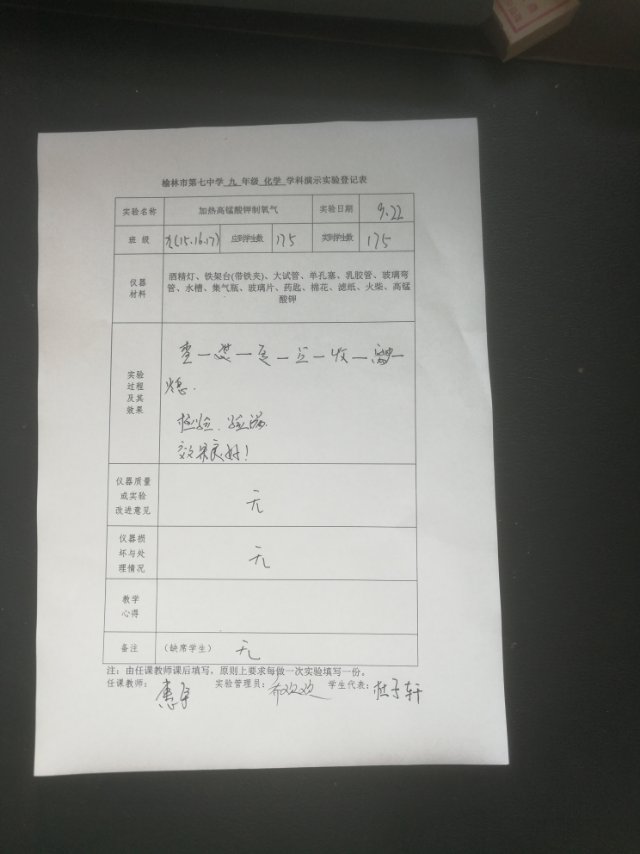 榆林市第七中学 九 年级 化学 学科演示实验登记表
实验名称 加热高锰酸钾制氧气 实验日期 9.22
班 级 九(15.16.17) 应到学生数 175 实到学生数 175
仪器
材料
酒精灯、铁架台(带铁夹)、大试管、单孔塞、乳胶管、玻璃弯
管、水槽、集气瓶、玻璃片、药匙、棉花、滤纸、火柴、高锰
酸钾
实验
过程
及其
效果
查一装一定一点一收一离一
熄.
检验.验满.
效果良好!
仪器质量
或实验
改进意见
无
仪器损
坏与处
理情况
无
教学
心得
备注 (缺席学生) 无
注:由任课教师课后填写,原则上要求每做一次实验填写一份。
任课教师: 实验管理员: 欢欢 学生代表: 杜子轩